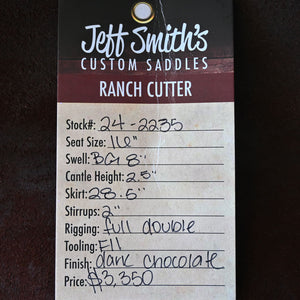 Jeff Smith's
CUSTOM SADDLES
RANCH CUTTER
Stock#: 24-2235
Seat Size: 16"
Swell: BG 8"
Cantle Height: 2.5"
Skirt: 28.5"
Stirrups: 2"
Rigging: full double
Tooling: F11
Finish: dark chocolate
Price: $3,350